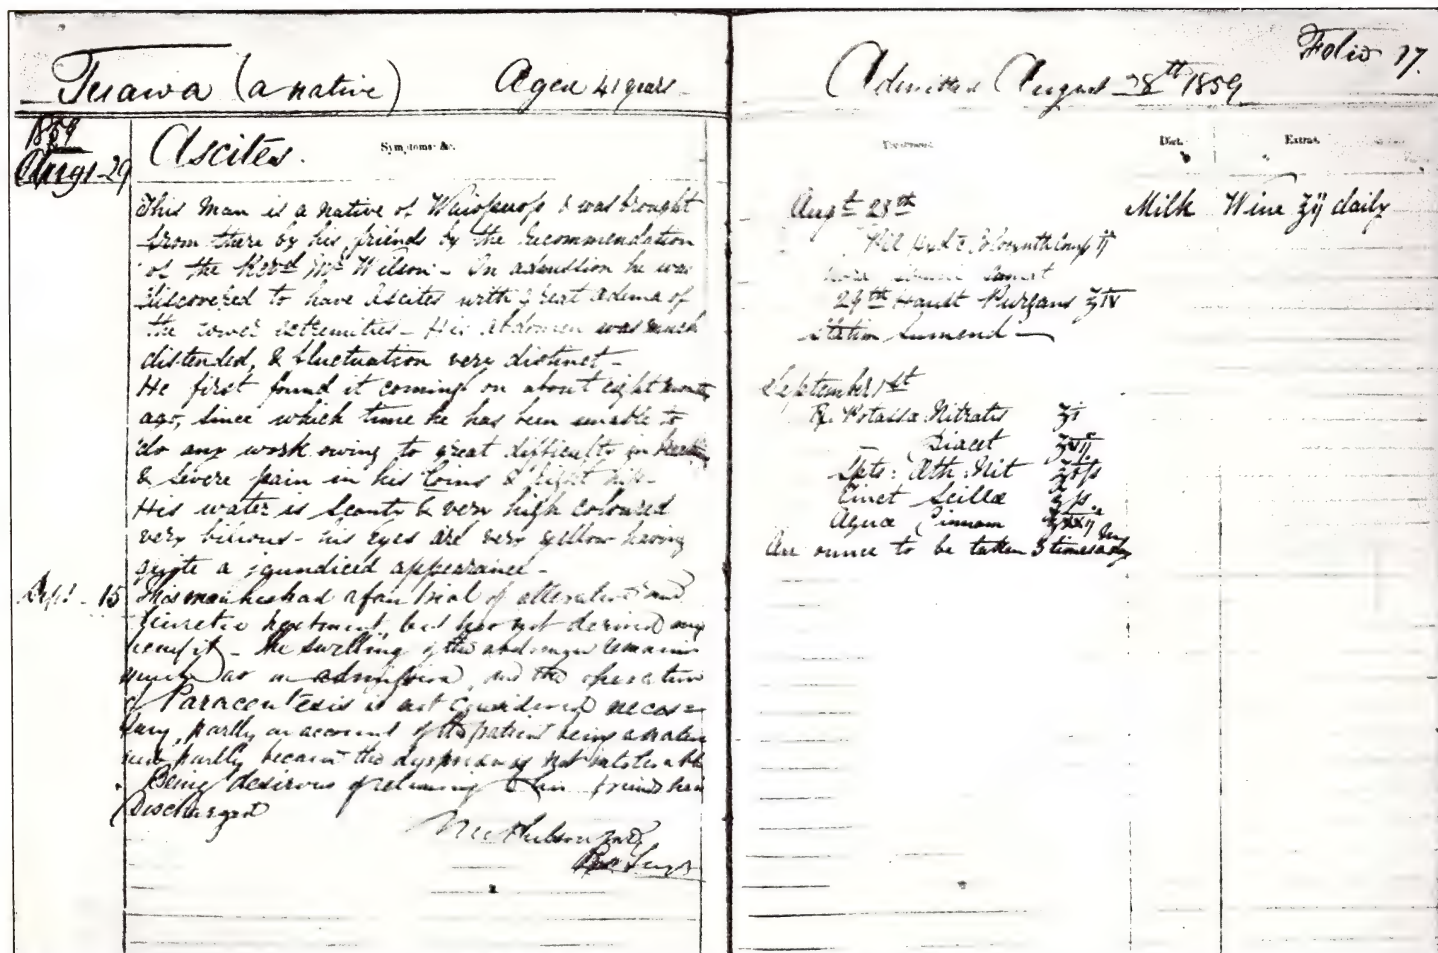 Folio 17.
(a native) Aged 41 years
Admitted August 28th 1859
1859
Augt - 29
Ascites.
Symptoms &c.
Treatment.
Diet.
Extras.
This Man is a native of & was brought
from there by his friends by the recommendation
of the Revd Mr Wilson - On admission he was
discovered to have Ascites with great Œdema of
the lower extremities - His Abdomen was much
distended, & fluctuation very distinct -
He first found it coming on about eight months
ago, since which time he has been unable to
do any work owing to great difficulty in
& severe pain in his loins & right hip -
His water is scanty & very high coloured
very bilious - his Eyes are very yellow having
quite a jaundiced appearance -
Sept - 15
This man has had a fair trial of alterative and
diuretic treatment but has not derived any
benefit - The swelling of the abdomen remains
much as on admission, and the operation
of Paracentesis is not considered neces=
sary, partly on account of the patient being a native
and partly because the dyspnœa is not intolerable
. Being desirous of returning to his friends
Discharged
Augt 28th
Milk Wine ℥ij daily
Colocynth Comp ij
29th Haust Purgans ℥iv
Statim Sumend -
September 1st
R. Potassa Nitratis ʒi
- Diacet
Spts: Æth: Nit
Tinct Scillæ
Aqua Cinnam
An ounce to be taken 3 times a day